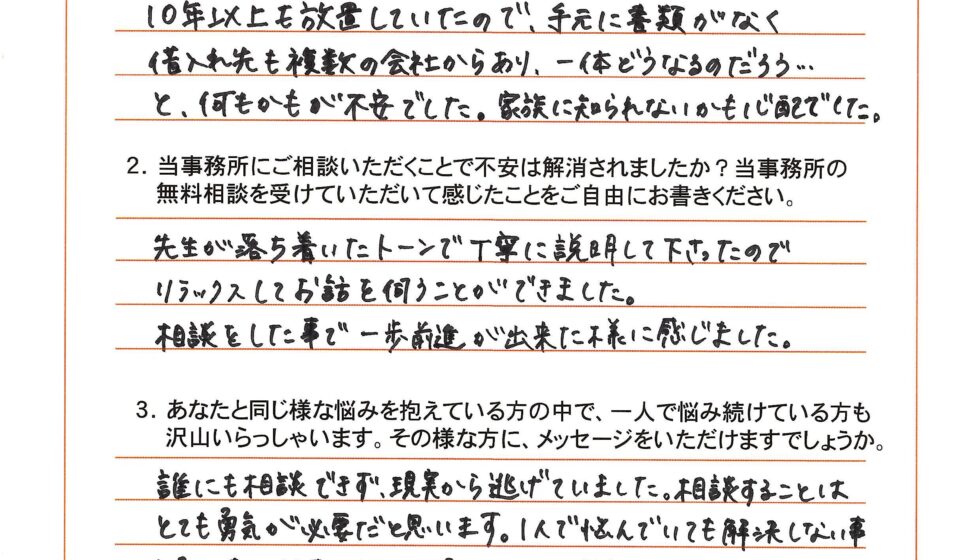 10年以上も放置していたので、手元に書類がなく
借入れ先も複数の会社からあり、一体どうなるのだろう…
と、何もかもが不安でした。家族に知られないかも心配でした。
2. 当事務所にご相談いただくことで不安は解消されましたか？当事務所の
無料相談を受けていただいて感じたことをご自由にお書きください。
先生が落ち着いたトーンで丁寧に説明して下さったので
リラックスしてお話を伺うことができました。
相談をした事で一歩前進が出来た様に感じました。
3. あなたと同じ様な悩みを抱えている方の中で、一人で悩み続けている方も
沢山いらっしゃいます。その様な方に、メッセージをいただけますでしょうか。
誰にも相談できず、現実から逃げていました。相談することは
とても勇気が必要だと思います。1人で悩んでいても解決しない事